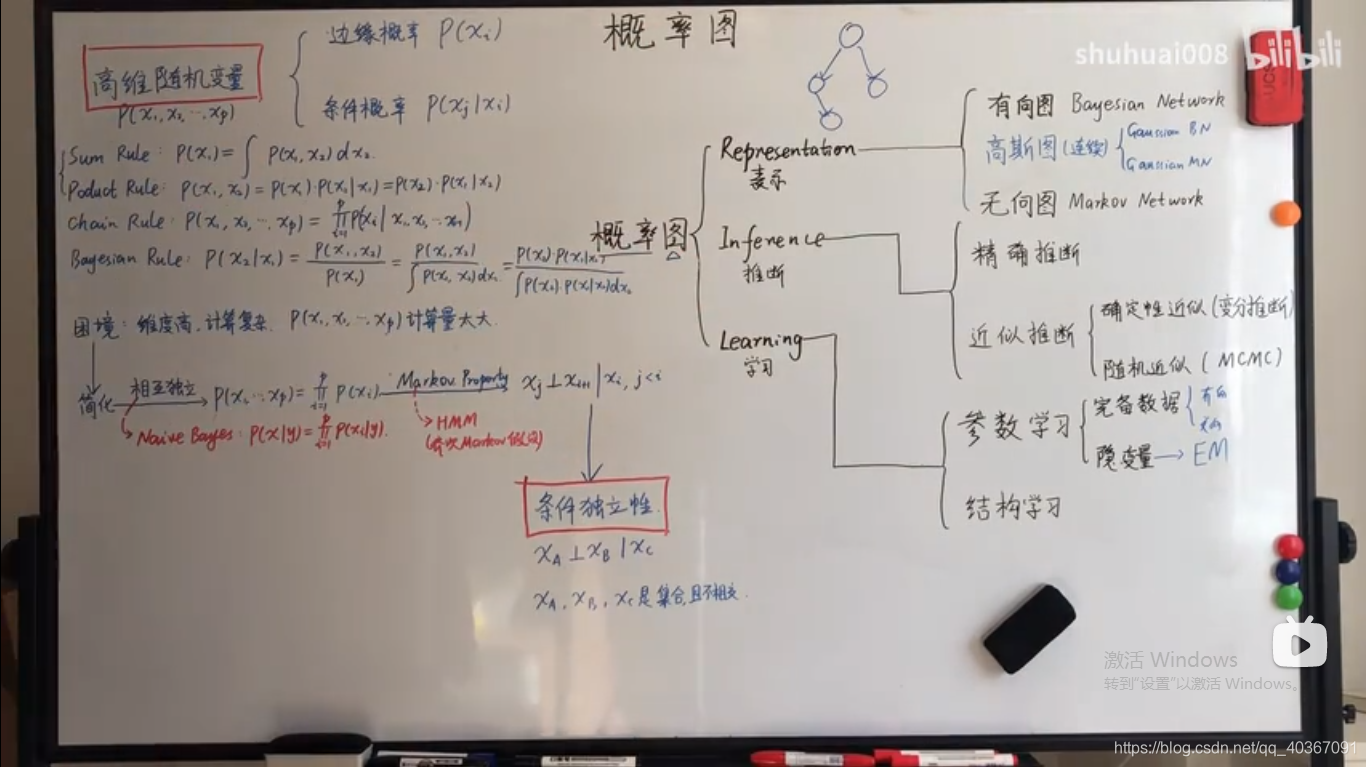 概率图
高维随机变量
P(x₁, x₂, ⋯, xₚ)
边缘概率 P(xᵢ)
条件概率 P(xⱼ|xᵢ)
Sum Rule: P(x₁) = ∫ P(x₁, x₂) dx₂.
Poduct Rule: P(x₁, x₂) = P(x₁)·P(x₂|x₁) = P(x₂)·P(x₁|x₂)
Chain Rule: P(x₁, x₂, ⋯, xₚ) = ∏ᵢ₌₁ᵖ P(xᵢ|x₁, x₂, ⋯xᵢ₋₁)
Bayesian Rule: P(x₂|x₁) = P(x₁, x₂) / P(x₁) = P(x₁, x₂) / ∫ P(x₁, x₂) dx₂ = P(x₂)·P(x₁|x₂) / ∫ P(x₂)·P(x₁|x₂) dx₂
困境: 维度高, 计算复杂. P(x₁, x₂, ⋯, xₚ) 计算量太大.
简化
相互独立
P(x₁, ⋯, xₚ) = ∏ᵢ₌₁ᵖ P(xᵢ)
Markov Property
xⱼ ⊥ xᵢ₊₁ | xᵢ, j<i
Naive Bayes: P(x|y) = ∏ᵢ₌₁ᵖ P(xᵢ|y).
HMM
(齐次Markov假设)
条件独立性.
x_A ⊥ x_B | x_C
x_A, x_B, x_C 是集合, 且不相交.
概率图
Representation
表示
有向图 Bayesian Network
高斯图(连续)
Gaussian BN
Gaussian MN
无向图 Markov Network
Inference
推断
精确推断
近似推断
确定性近似(变分推断)
随机近似 (MCMC)
Learning
学习
参数学习
完备数据
有向
隐变量 → EM
结构学习
shuhuai008 bilibili
激活 Windows
转到"设置"以激活 Windows。
https://blog.csdn.net/qq_40367091